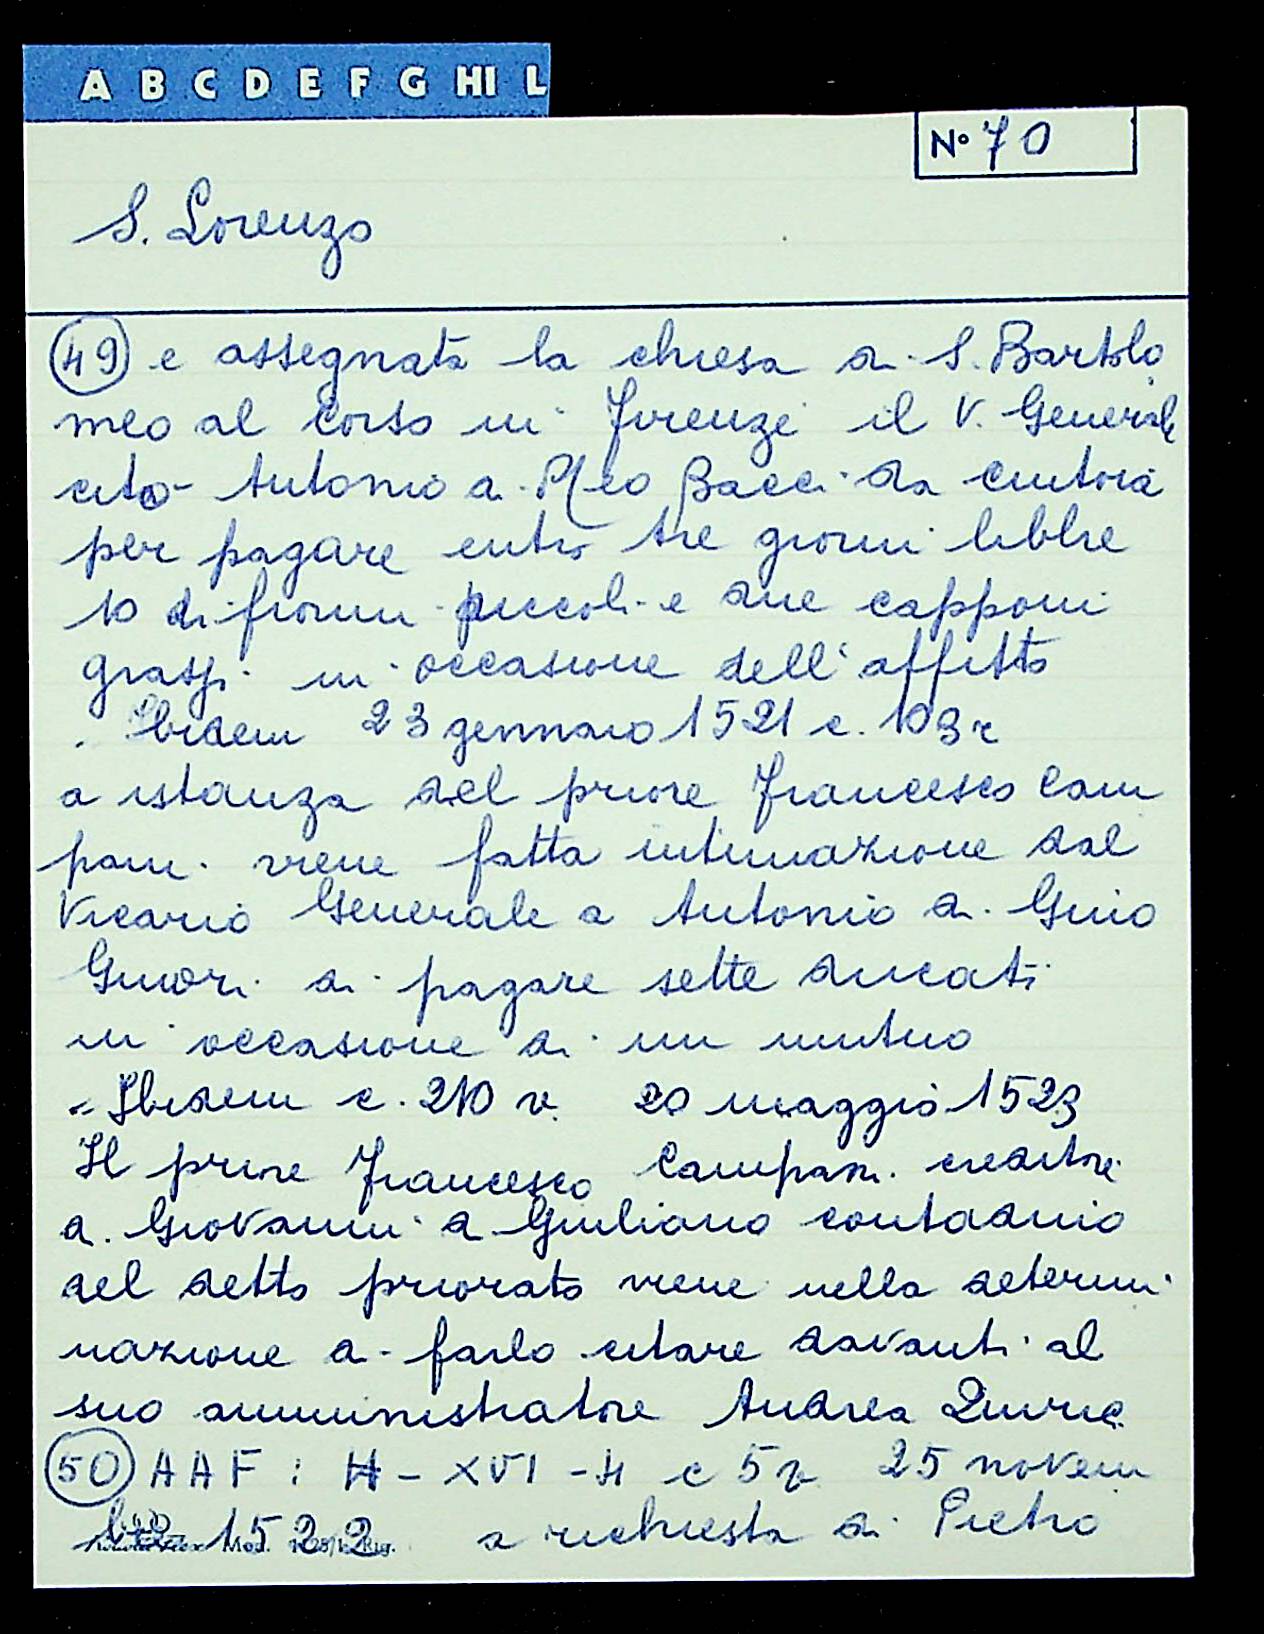 A B C D E F G HI L
N° 70
S. Lorenzo
49 e assegnata la chiesa di S. Bartolo
meo al Corso in Firenze il V. Generale
cita Antonio di Meo Bacci da Cintoia
per pagare entro tre giorni libbre
10 di fiorini piccoli e due capponi
grassi in occasione dell'affitto
. Ibidem 23 gennaio 1521 c. 103r
a istanza del priore Francesco Cam
pani viene fatta intimazione dal
Vicario Generale a Antonio di Guio
Guidori di pagare sette ducati
in occasione di un mutuo
= Ibidem c. 210 v. 20 maggio 1523
Il priore Francesco Campani creditore
di Giovanni di Giuliano contadino
del detto priorato viene nella determi
nazione di farlo citare davanti al
suo amministratore Andrea
50 AAF: H - XVI - 4 c 5v 25 novem
bre 1522 a richiesta di Pietro